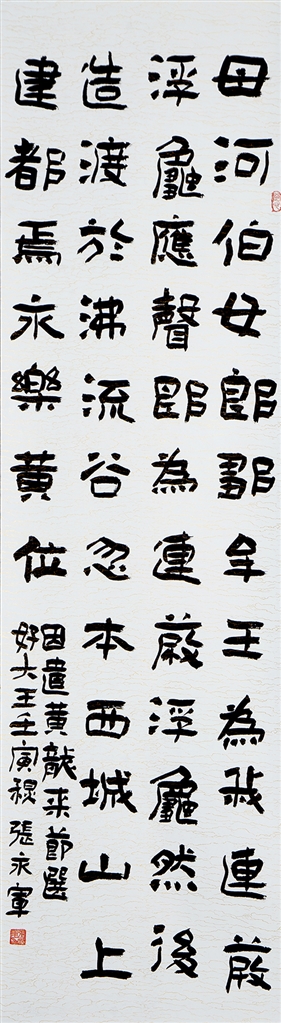 母河伯女郎鄒牟王為我連葭
浮龜應聲即為連葭浮龜然後
造渡於沸流谷忽本西城山上
建都焉永樂黃位
因遣黃龍来節選
好大王壬寅 張永軍